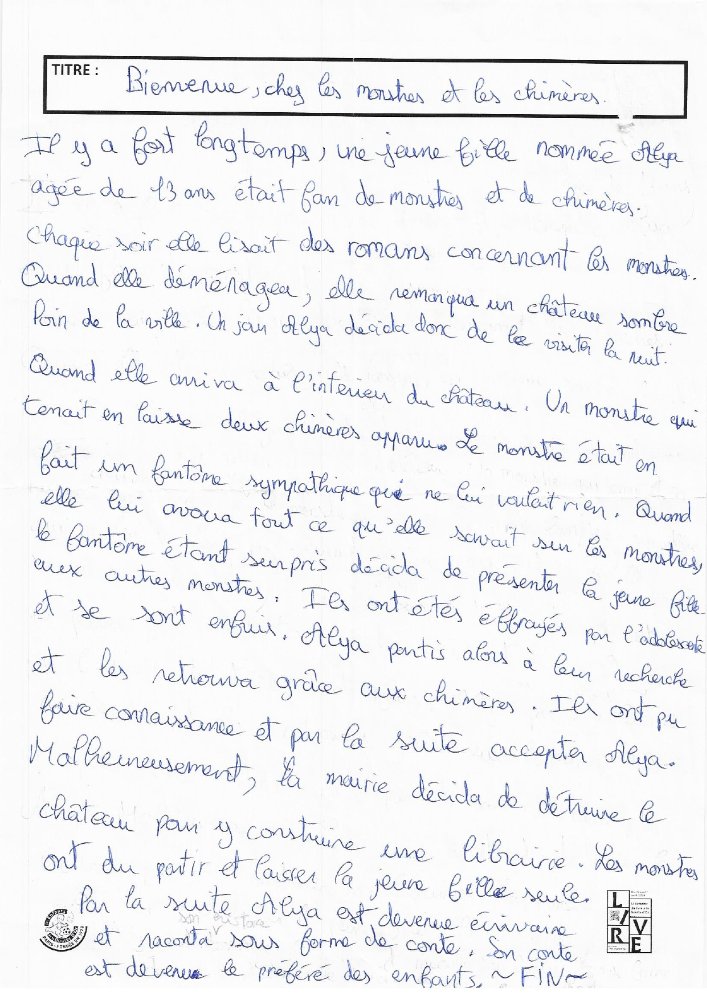 TITRE :
Bienvenue, chez les monstres et les chimères.
Il y a fort longtemps, une jeune fille nommée Alya
agée de 13 ans était fan de monstres et de chimères.
Chaque soir elle lisait des romans concernant les monstres.
Quand elle déménagea, elle remarqua un château sombre
loin de la ville. Un jour Alya décida donc de le visiter la nuit.
Quand elle arriva à l'intérieur du château. Un monstre qui
tenait en laisse deux chimères apparu. Le monstre était en
fait un fantôme sympathique qui ne lui voulait rien. Quand
elle lui avoua tout ce qu'elle savait sur les monstres,
le fantôme étant surpris décida de présenter la jeune fille
aux autres monstres. Ils ont étés effrayés par l'adolescente
et se sont enfuis. Alya partis alors à leur recherche
et les retrouva grâce aux chimères. Ils ont pu
faire connaissance et par la suite accepter Alya.
Malheureusement, la mairie décida de détruire le
château pour y construire une librairie. Les monstres
ont du partir et laisser la jeune fille seule.
Par la suite Alya est devenue écrivaine
son histoire
et raconta sous forme de conte. Son conte
est devenu le préféré des enfants. ~ FIN ~
LIRE
VE